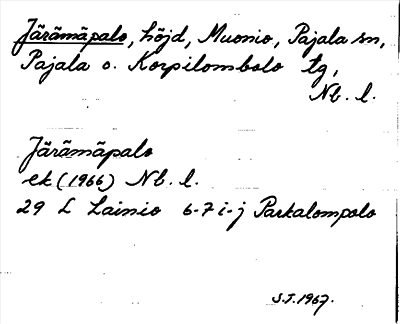 Järämäpalo, höjd, Muonio, Pajala sn,
Pajala o. Korpilombolo tg,
Nb. l.
Järämäpalo
ek (1966) Nb. l.
29 L Lainio 6-7 i-j Parkalompolo
S.J. 1967.